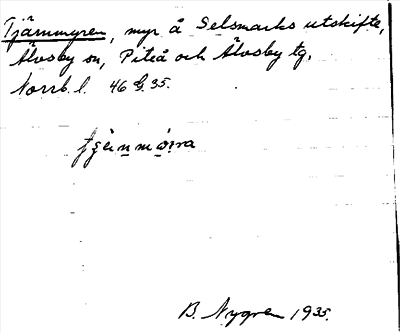 Tjärnmyren, myr å Selsmarks utskifte,
Älvsby sn, Piteå och Älvsby tg.
Norrb. l. 46 G 35.
B. Nygren 1935.